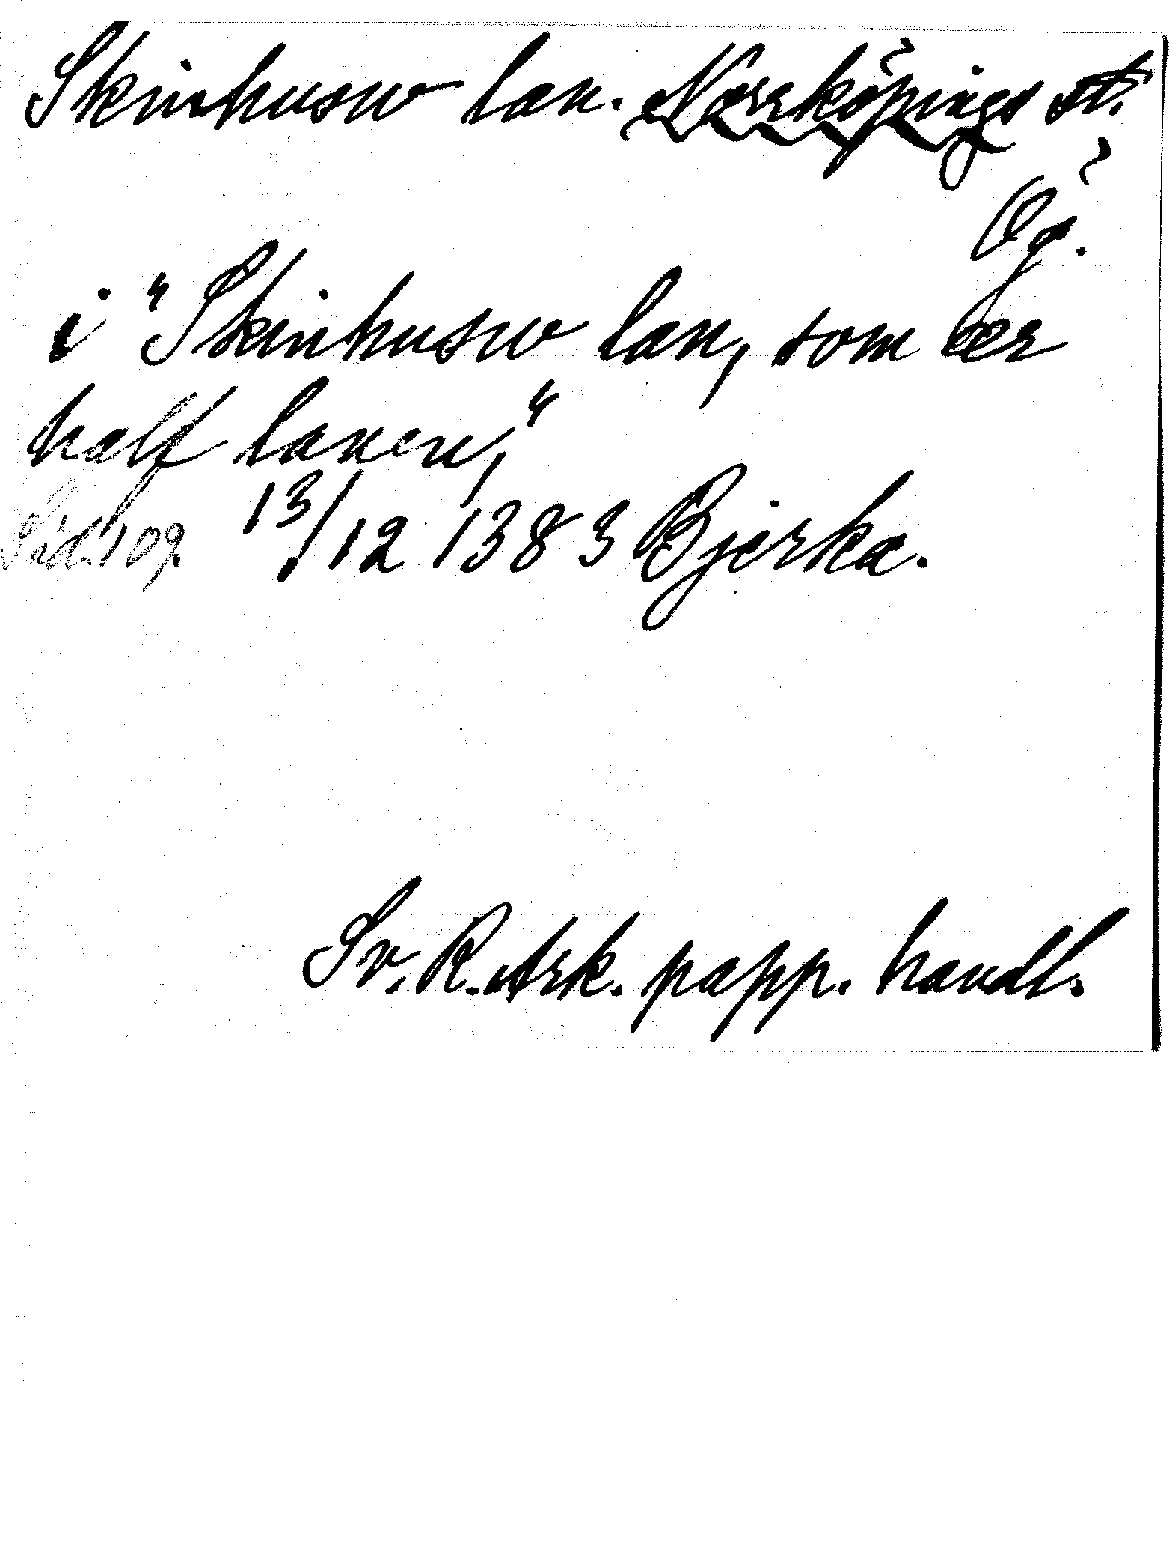 Skinhusw lan. Norrköpings st.
Ög.
i "Skinhusw lan, som ær
half lanen,"
Sid. 109. 13/12 1383 Bjerka.
Sv. R. Ark. papp. handl.